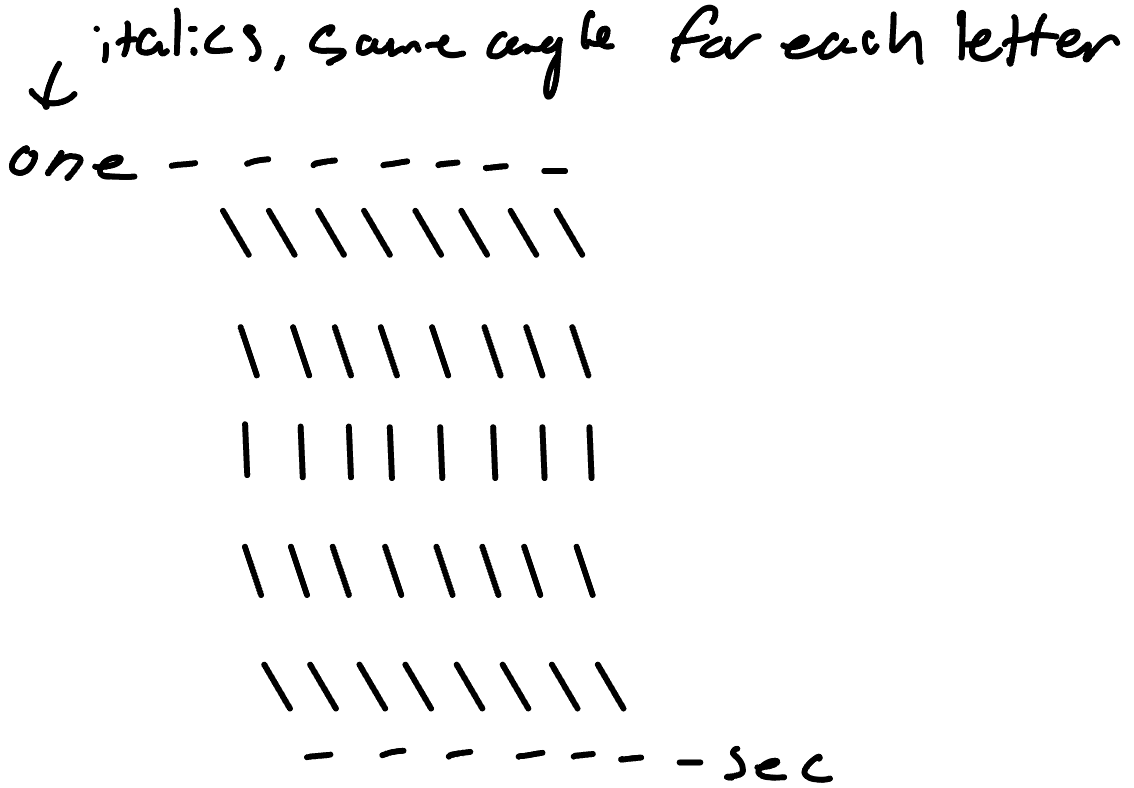 italics, same angle for each letter
↓
one - - - - - - -
\ \ \ \ \ \ \ \
\ \ \ \ \ \ \ \
| | | | | | | |
\ \ \ \ \ \ \ \
\ \ \ \ \ \ \ \
- - - - - - - sec